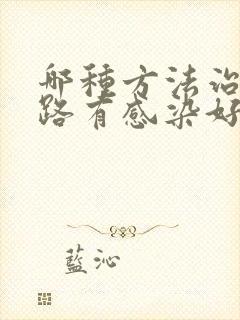 哪種方法治
路有感染好
藍沁